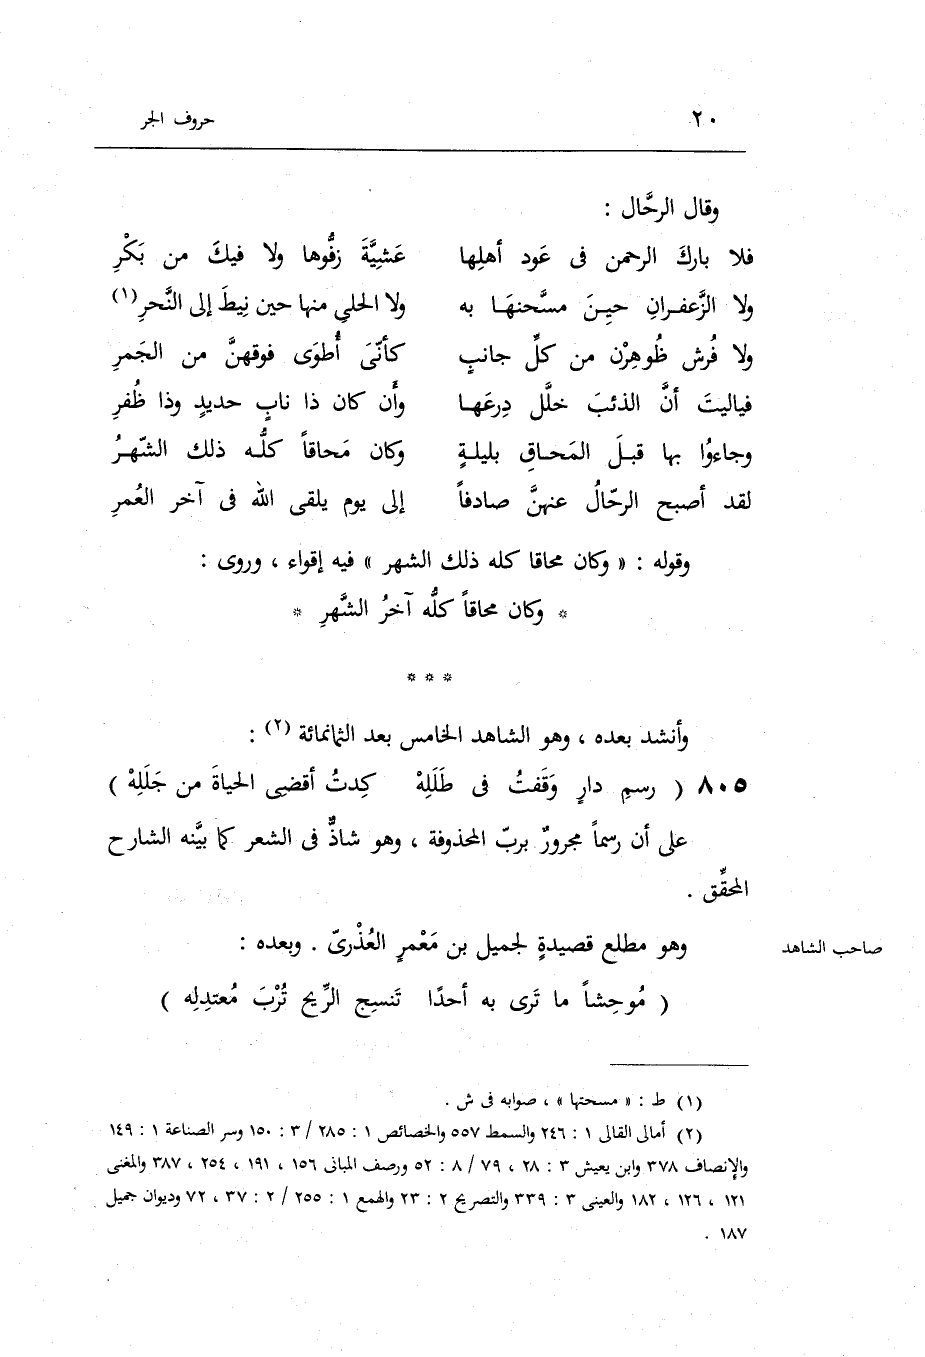 ٢٠ حروف الجر
وقال الرحَّال :
فلا باركَ الرحمن فى عَود أهلِها عَشيَّةَ زفُّوها ولا فيكَ من بَكْرِ
ولا الزَّعفـرانِ حيـنَ مسَّحنهَـا به ولا الحلىِ منها حين نِيطَ إلى النَّحرِ (١)
ولا فُرش ظُوهِرْن من كلِّ جانبٍ كأنّىَ أُطوَى فوقهنَّ من الجَمرِ
فياليتَ أنَّ الذئبَ خلَّل دِرعَهـا وأن كان ذا نابٍ حديدٍ وذا ظُفرِ
وجاءوُا بها قبـلَ المَحـاقِ بليلـةٍ وكان مَحاقاً كلُّـه ذلك الشّهـرُ
لقد أصبح الرحّالُ عنهنَّ صادفاً إلى يوم يلقى الله فى آخر العُمرِ
وقوله : « وكان محاقا كله ذلك الشهر » فيه إقواء ، وروى :
* وكان محاقاً كلُّه آخرُ الشَّهرِ *
* * *
وأنشد بعده ، وهو الشاهد الخامس بعد الثمانمائة (٢) :
٨٠٥ ( رسمِ دارٍ وَقَفتُ فى طَلَلِهْ كِدتُ أقضِى الحياةَ من جَلَلِهْ )
على أن رسماً مجرورٌ بربّ المحذوفة ، وهو شاذٌّ فى الشعر كما بيَّنه الشارح
المحقِّق .
وهو مطلع قصيدةٍ لجميل بن مَعْمرٍ العُذْرىّ . وبعده : صاحب الشاهد
( مُوحِشاً ما تَرى به أحدًا تَنسِج الرِّيح تُرْبَ مُعتدِلِه )
(١) ط : « مسحتها » ، صوابه فى ش .
(٢) أمالى القالى ١ : ٢٤٦ والسمط ٥٥٧ والخصائص ١ : ٢٨٥ / ٣ : ١٥٠ وسر الصناعة ١ : ١٤٩
والإنصاف ٣٧٨ وابن يعيش ٣ : ٢٨ ، ٧٩ / ٨ : ٥٢ ورصف المبانى ١٥٦ ، ١٩١ ، ٢٥٤ ، ٣٨٧ والمغنى
١٢١ ، ١٢٦ ، ١٨٢ والعينى ٣ : ٣٣٩ والتصريح ٢ : ٢٣ والهمع ١ : ٢٥٥ / ٢ : ٣٧ ، ٧٢ وديوان جميل
١٨٧ .